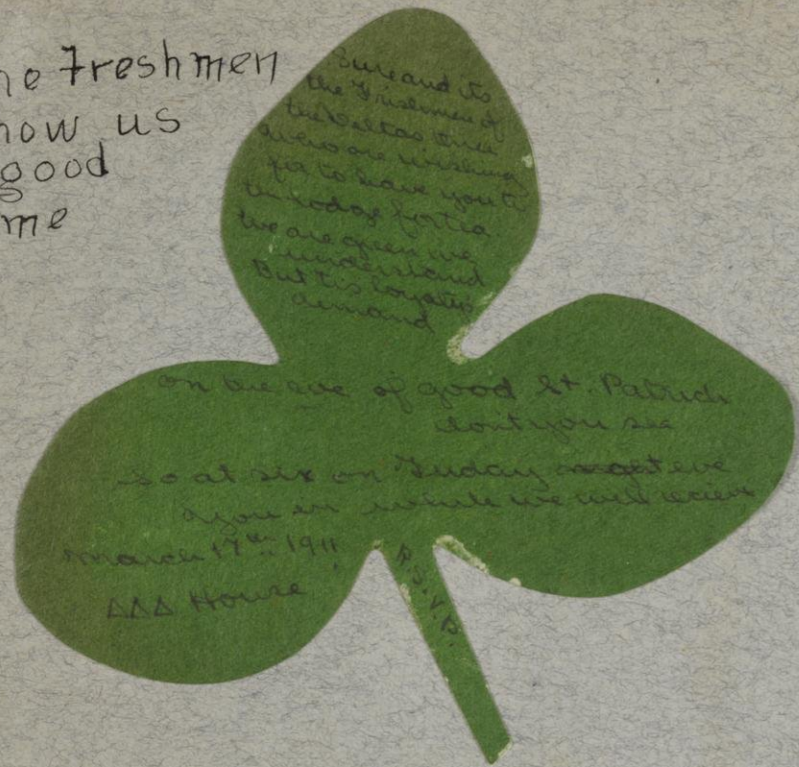 he Freshmen
how us
good
me
Sure and its
the Irishmen of
the Deltas three
who are wishing
for to have you to
the lodge for tea
We are green we
understand
But tis loyaltys
demand
on the eve of good St. Patrick
dont you see
so at six on Friday eve
you in we will recieve
March 17th 1911
ΔΔΔ House
R.S.V.P.